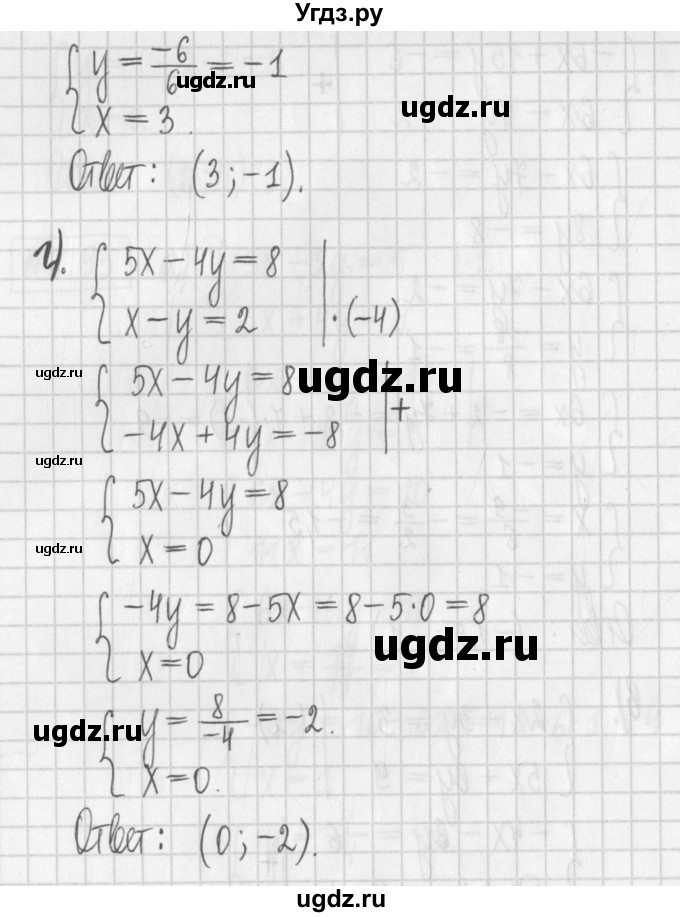 Угдз.ру
{ y = -6/6 = -1
ugdz.ru
x = 3.
ugdz.ru
Ответ: (3; -1).
г). { 5x - 4y = 8
x - y = 2 | ·(-4)
ugdz.ru
{ 5x - 4y = 8
ugdz.ru
-4x + 4y = -8 | +
ugdz.ru
{ 5x - 4y = 8
ugdz.ru
x = 0
{ -4y = 8 - 5x = 8 - 5·0 = 8
ugdz.ru
x = 0
ugdz.ru
{ y = 8/-4 = -2.
x = 0.
Ответ: (0; -2).
ugdz.ru